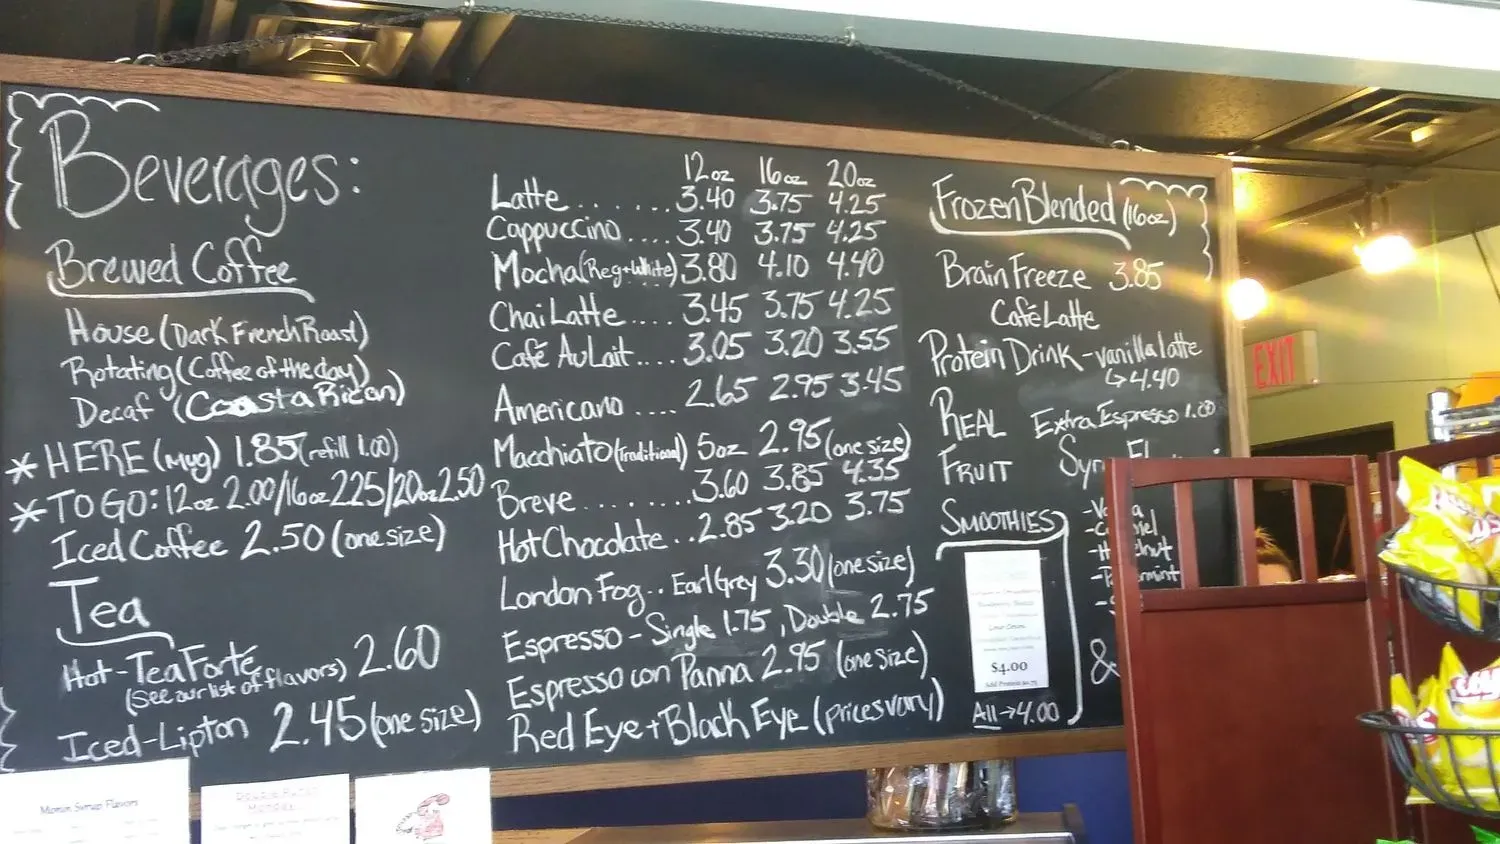 Beverages:
Brewed Coffee
House (Dark French Roast)
Rotating (Coffee of the day)
Decaf (Coasta Rican)
* HERE (mug) 1.85 (refill 1.00)
* TO GO: 12oz 2.00/16oz 225/20oz 2.50
Iced Coffee 2.50 (one size)
Tea
Hot-Tea Forté 2.60
(See our list of flavors)
Iced-Lipton 2.45 (one size)
12oz 16oz 20oz
Latte....... 3.40 3.75 4.25
Cappuccino.... 3.40 3.75 4.25
Mocha (Reg+White) 3.80 4.10 4.40
Chai Latte.... 3.45 3.75 4.25
Café Au Lait.... 3.05 3.20 3.55
Americano .... 2.65 2.95 3.45
Macchiato (traditional) 5oz 2.95 (one size)
Breve ....... 3.60 3.85 4.35
Hot Chocolate.. 2.85 3.20 3.75
London Fog.. Earl Grey 3.30 (one size)
Espresso - Single 1.75, Double 2.75
Espresso con Panna 2.95 (one size)
Red Eye + Black Eye (prices vary)
Frozen Blended (16oz)
Brain Freeze 3.85
Café Latte
Protein Drink - vanilla latte
↳ 4.40
REAL
FRUIT
SMOOTHIES
$4.00
Add Protein $0.75
All → 4.00
Extra Espresso
&
EXIT
Monin Syrup Flavors
Double Punch
Monday